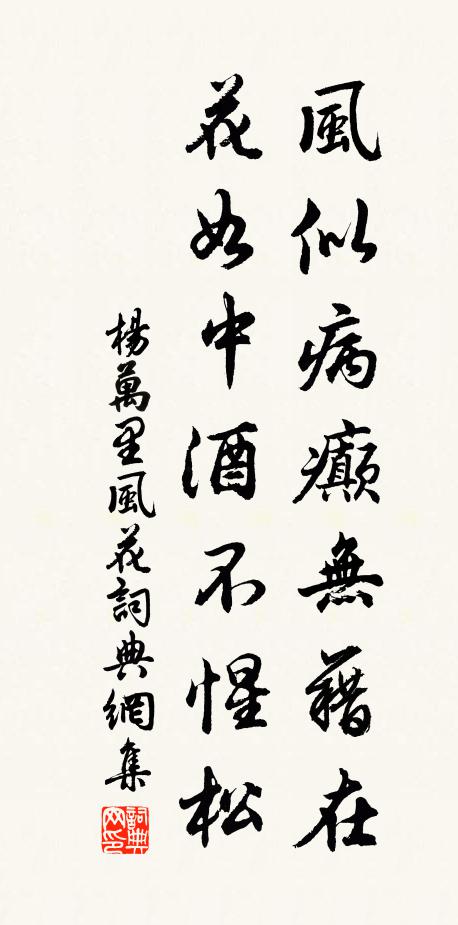 風似病癲無藉在
花如中酒不惺松
楊萬里風花詞典網集
詞典
网印